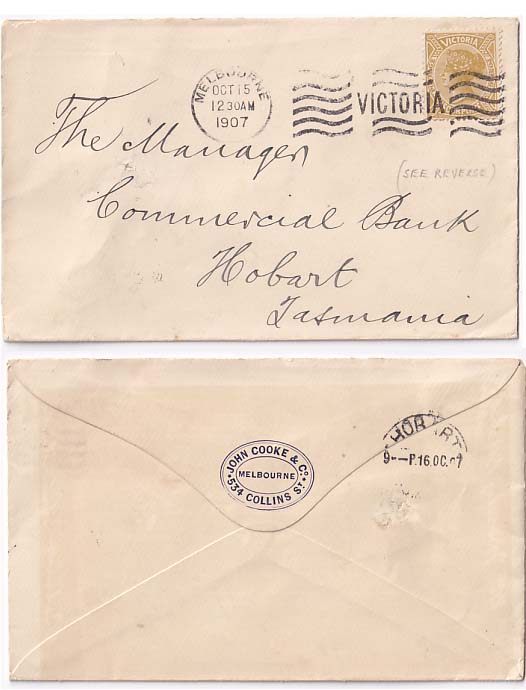 VICTORIA
MELBOURNE
OCT 15
12 30AM
1907
VICTORIA
The Manager
(SEE REVERSE)
Commercial Bank
Hobart
Tasmania
JOHN COOKE & Co
MELBOURNE
534 COLLINS ST.
HOBART
9--P.16.OC.07